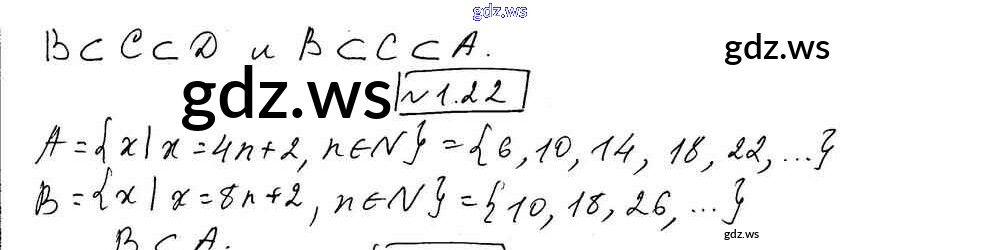 gdz.ws
B ⊂ C ⊂ D и B ⊂ C ⊂ A.
gdz.ws
gdz.ws
~1.22
A = {x | x = 4n+2, n∈N} = {6, 10, 14, 18, 22, ...}
B = {x | x = 8n+2, n∈N} = {10, 18, 26, ...}
gdz.ws
B ⊂ A.